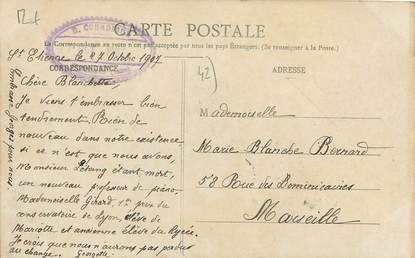 CARTE POSTALE
La Correspondance au recto n'est pas acceptée par tous les pays Étrangers. (Se renseigner à la Poste.)
CORRESPONDANCE
ADRESSE
42
St Etienne le 27 Octobre 1907
Chère Blanchette
Je viens t'embrasser bien
tendrement Rien de
nouveau dans notre existence
si ce n'est que nous avons,
Monsieur étant mort,
un nouveau professeur de piano.
Mademoiselle Girard, 1er prix du
conservatoire de Lyon, élève de
Marcotte et ancienne élève du Lycée.
Je crois que nous n'aurons pas perdu
au change. Georgette
Embrasse pour nous
Mademoiselle
Marie Blanche Bernard
58 Rue des Dominicaines
Marseille